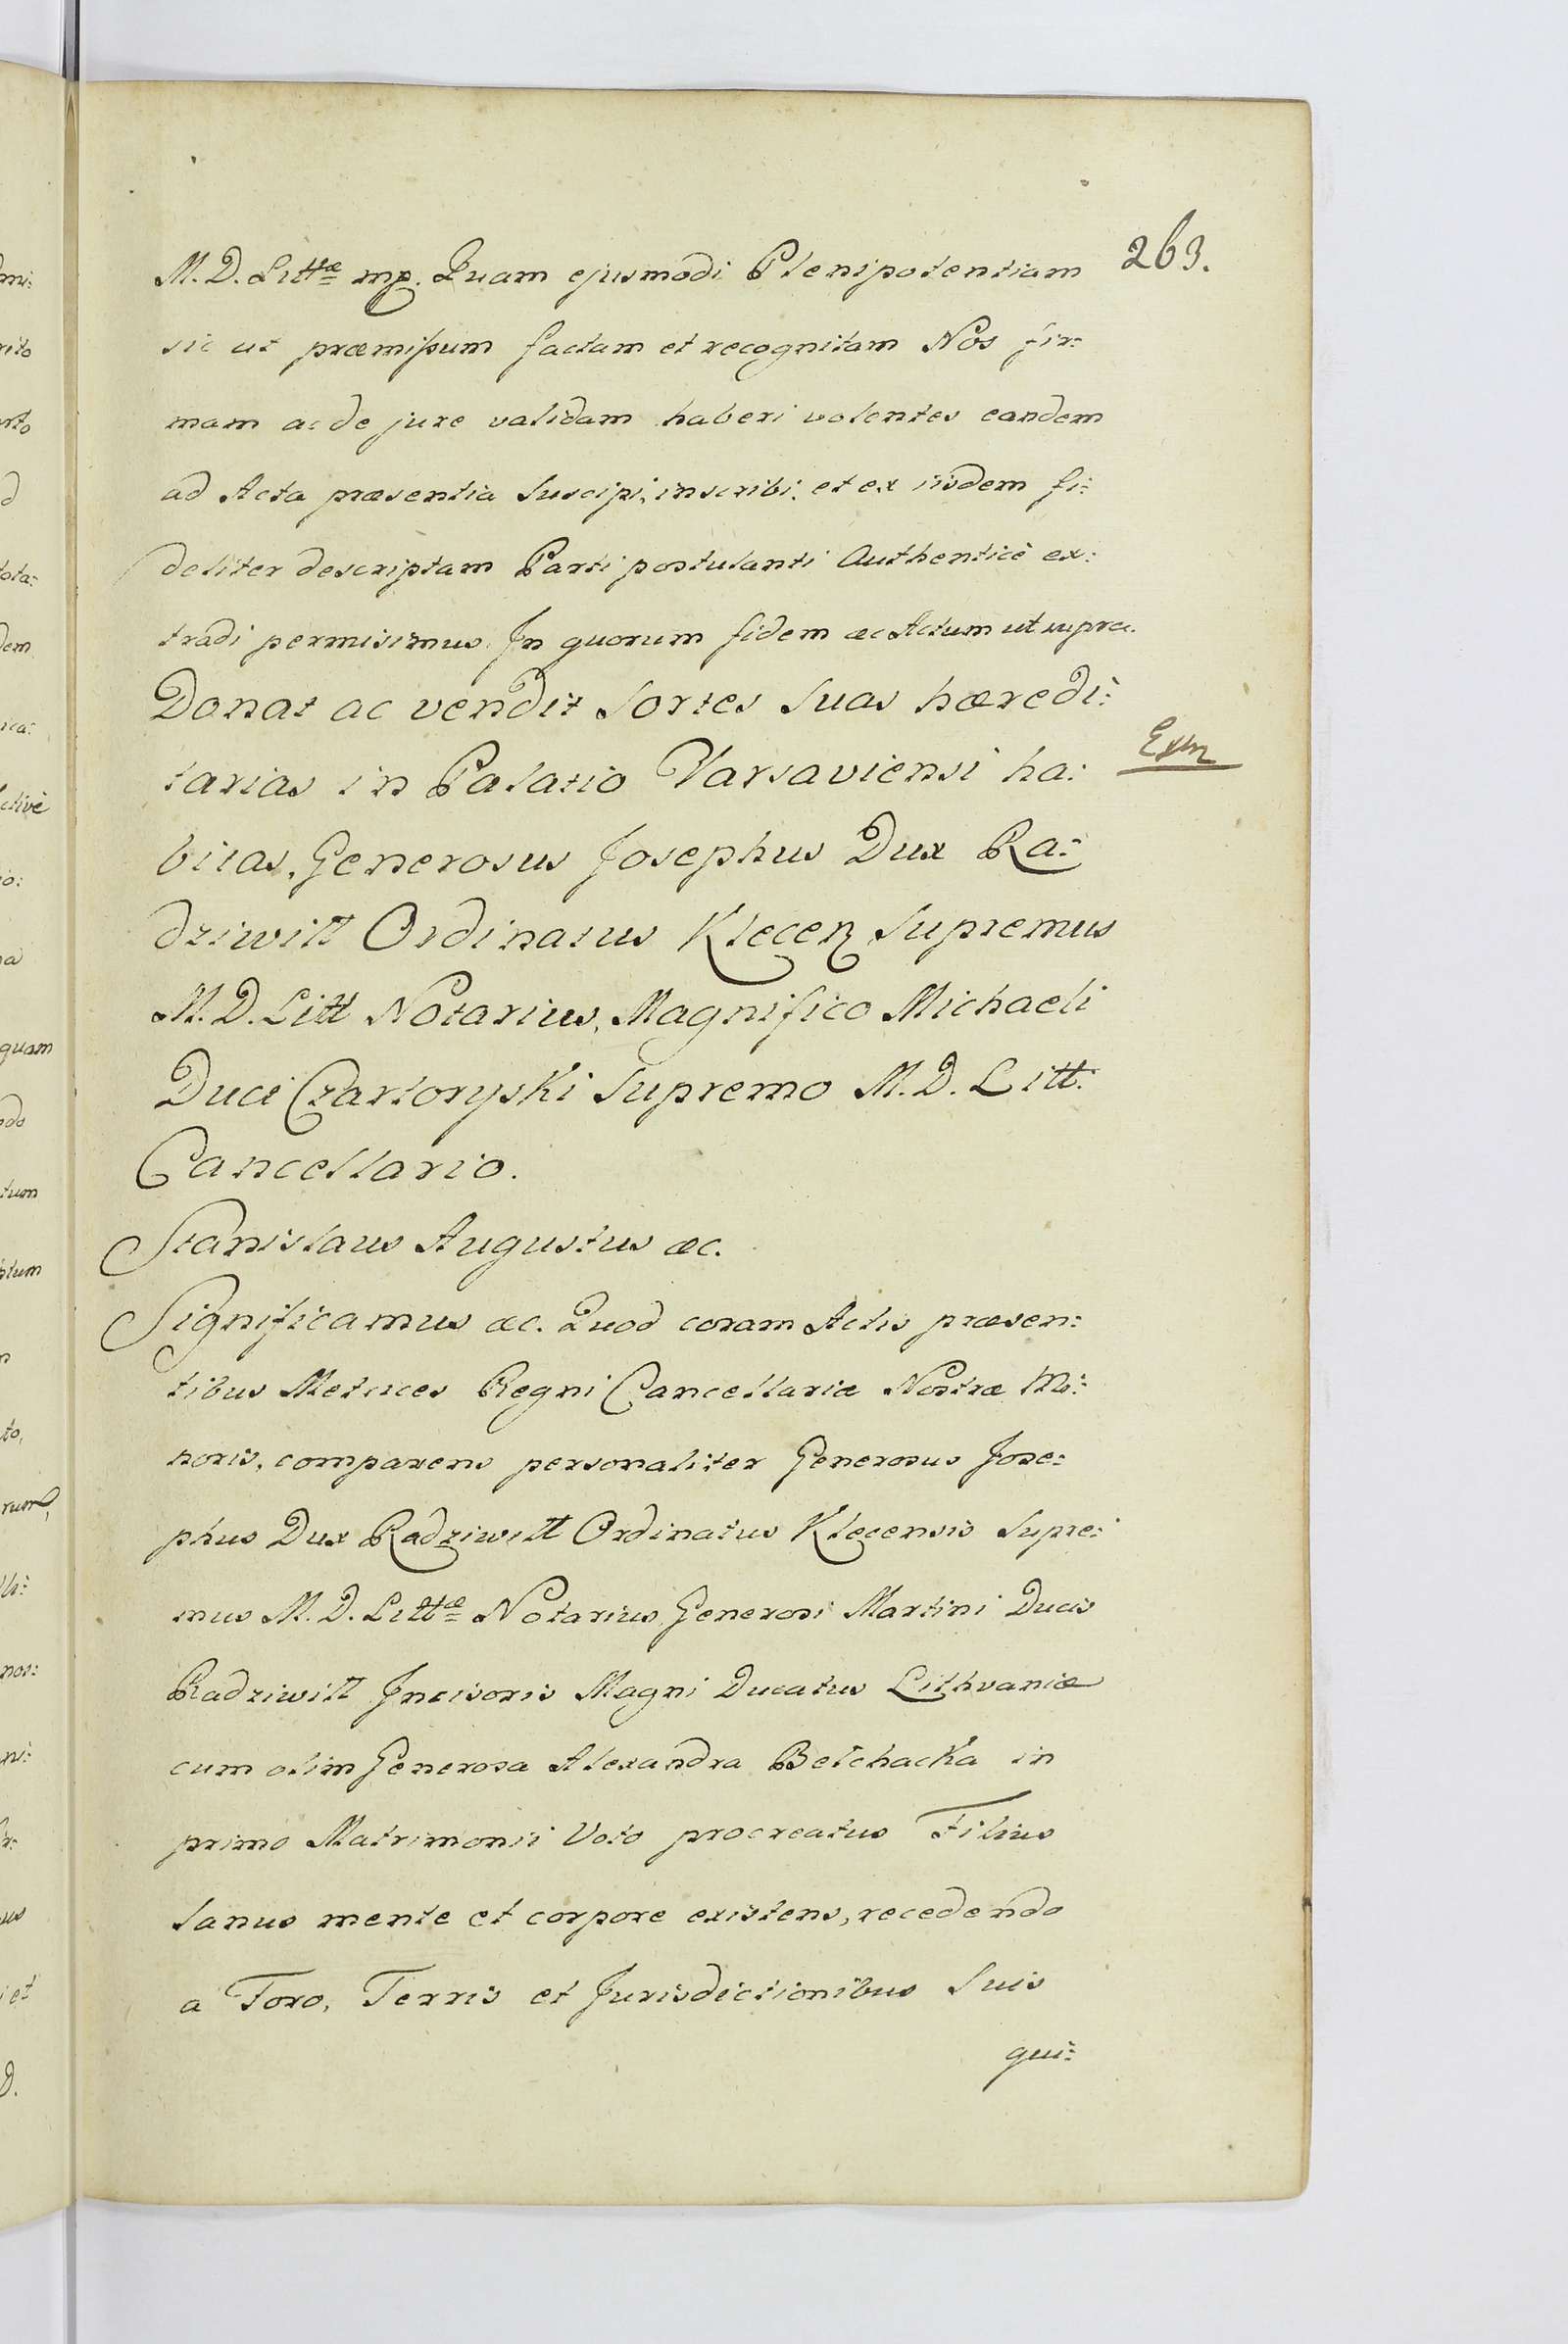 263.
M. D. Littæ mp. Quam ejusmodi Plenipotentiam
sic ut præmissum factam et recognitam Nos fir:
mam ac de jure validam haberi volentes eandem
ad Acta præsentia suscipi, inscribi, et ex iisdem fi:
deliter descriptam Parti postulanti Authenticè ex:
tradi permisimus. In quorum fidem &c Actum ut supra.
Donat ac vendit sortes suas hæredi:
tarias in Palatio Varsaviensi ha:
bitas, Generosus Josephus Dux Ra:
dziwiłł Ordinatus Klecen Supremus
M. D. Litt Notarius, Magnifico Michaeli
Duci Czartoryski Supremo M. D. Litt.
Cancellario.
Stanislaus Augustus &c.
Significamus &c. Quod coram Actis præsen:
tibus Metrices Regni Cancellariæ Nostræ Mi:
noris, comparens personaliter Generosus Jose:
phus Dux Radziwiłł Ordinatus Klecensis Supre:
mus M. D. Littæ Notarius, Generosi Martini Ducis
Radziwiłł Incisoris Magni Ducatus Lithvaniæ
cum olim Generosa Alexandra Bełchacka in
primo Matrimonii Voto procreatus Filius
sanus mente et corpore existens, recedendo
a Foro, Terris et Jurisdictionibus suis
qui: